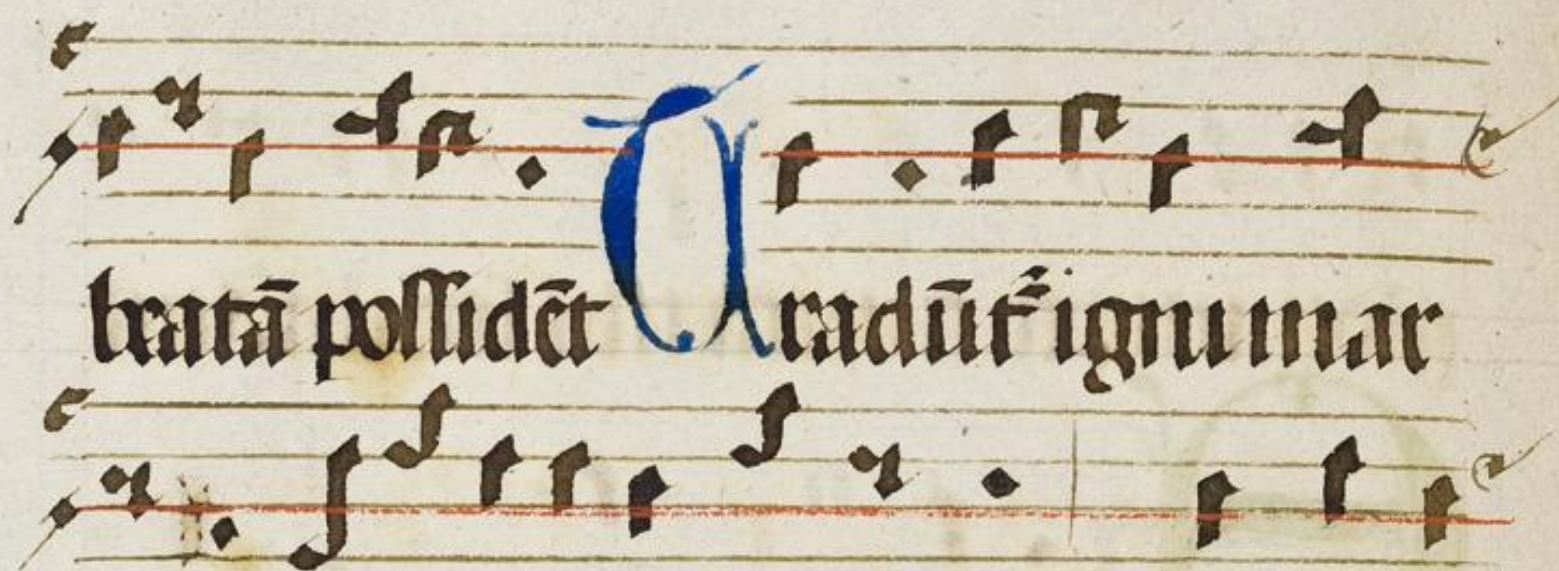 beatā possidēt Tradūt᷑ igni mar